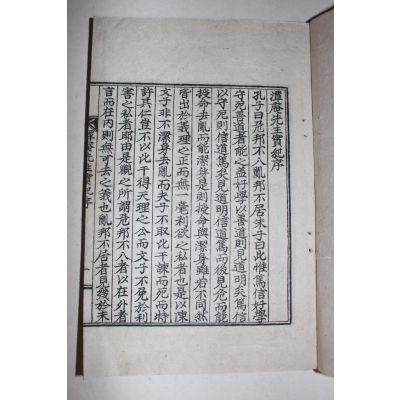 潭庵先生實記序
孔子曰危邦不入亂邦不居朱子曰此惟篤信好學
守死善道者能之盖好學以善道則見道明矣篤信
以守死則信道篤矣見道明信道篤而後見危而能
授命去亂而能潔身是則授命與潔身雖若不同然
皆出於義理之正而無一毫利欲之私者也是以陳
文子非不潔身去亂而夫子不取比干諫而死而特
許其仁豈不以比干得天理之公而文子不免於利
害之私者耶由是觀之所謂危邦不入者以在外者
言而在内則無可去之義也亂邦不居者見幾於未
先生實記序